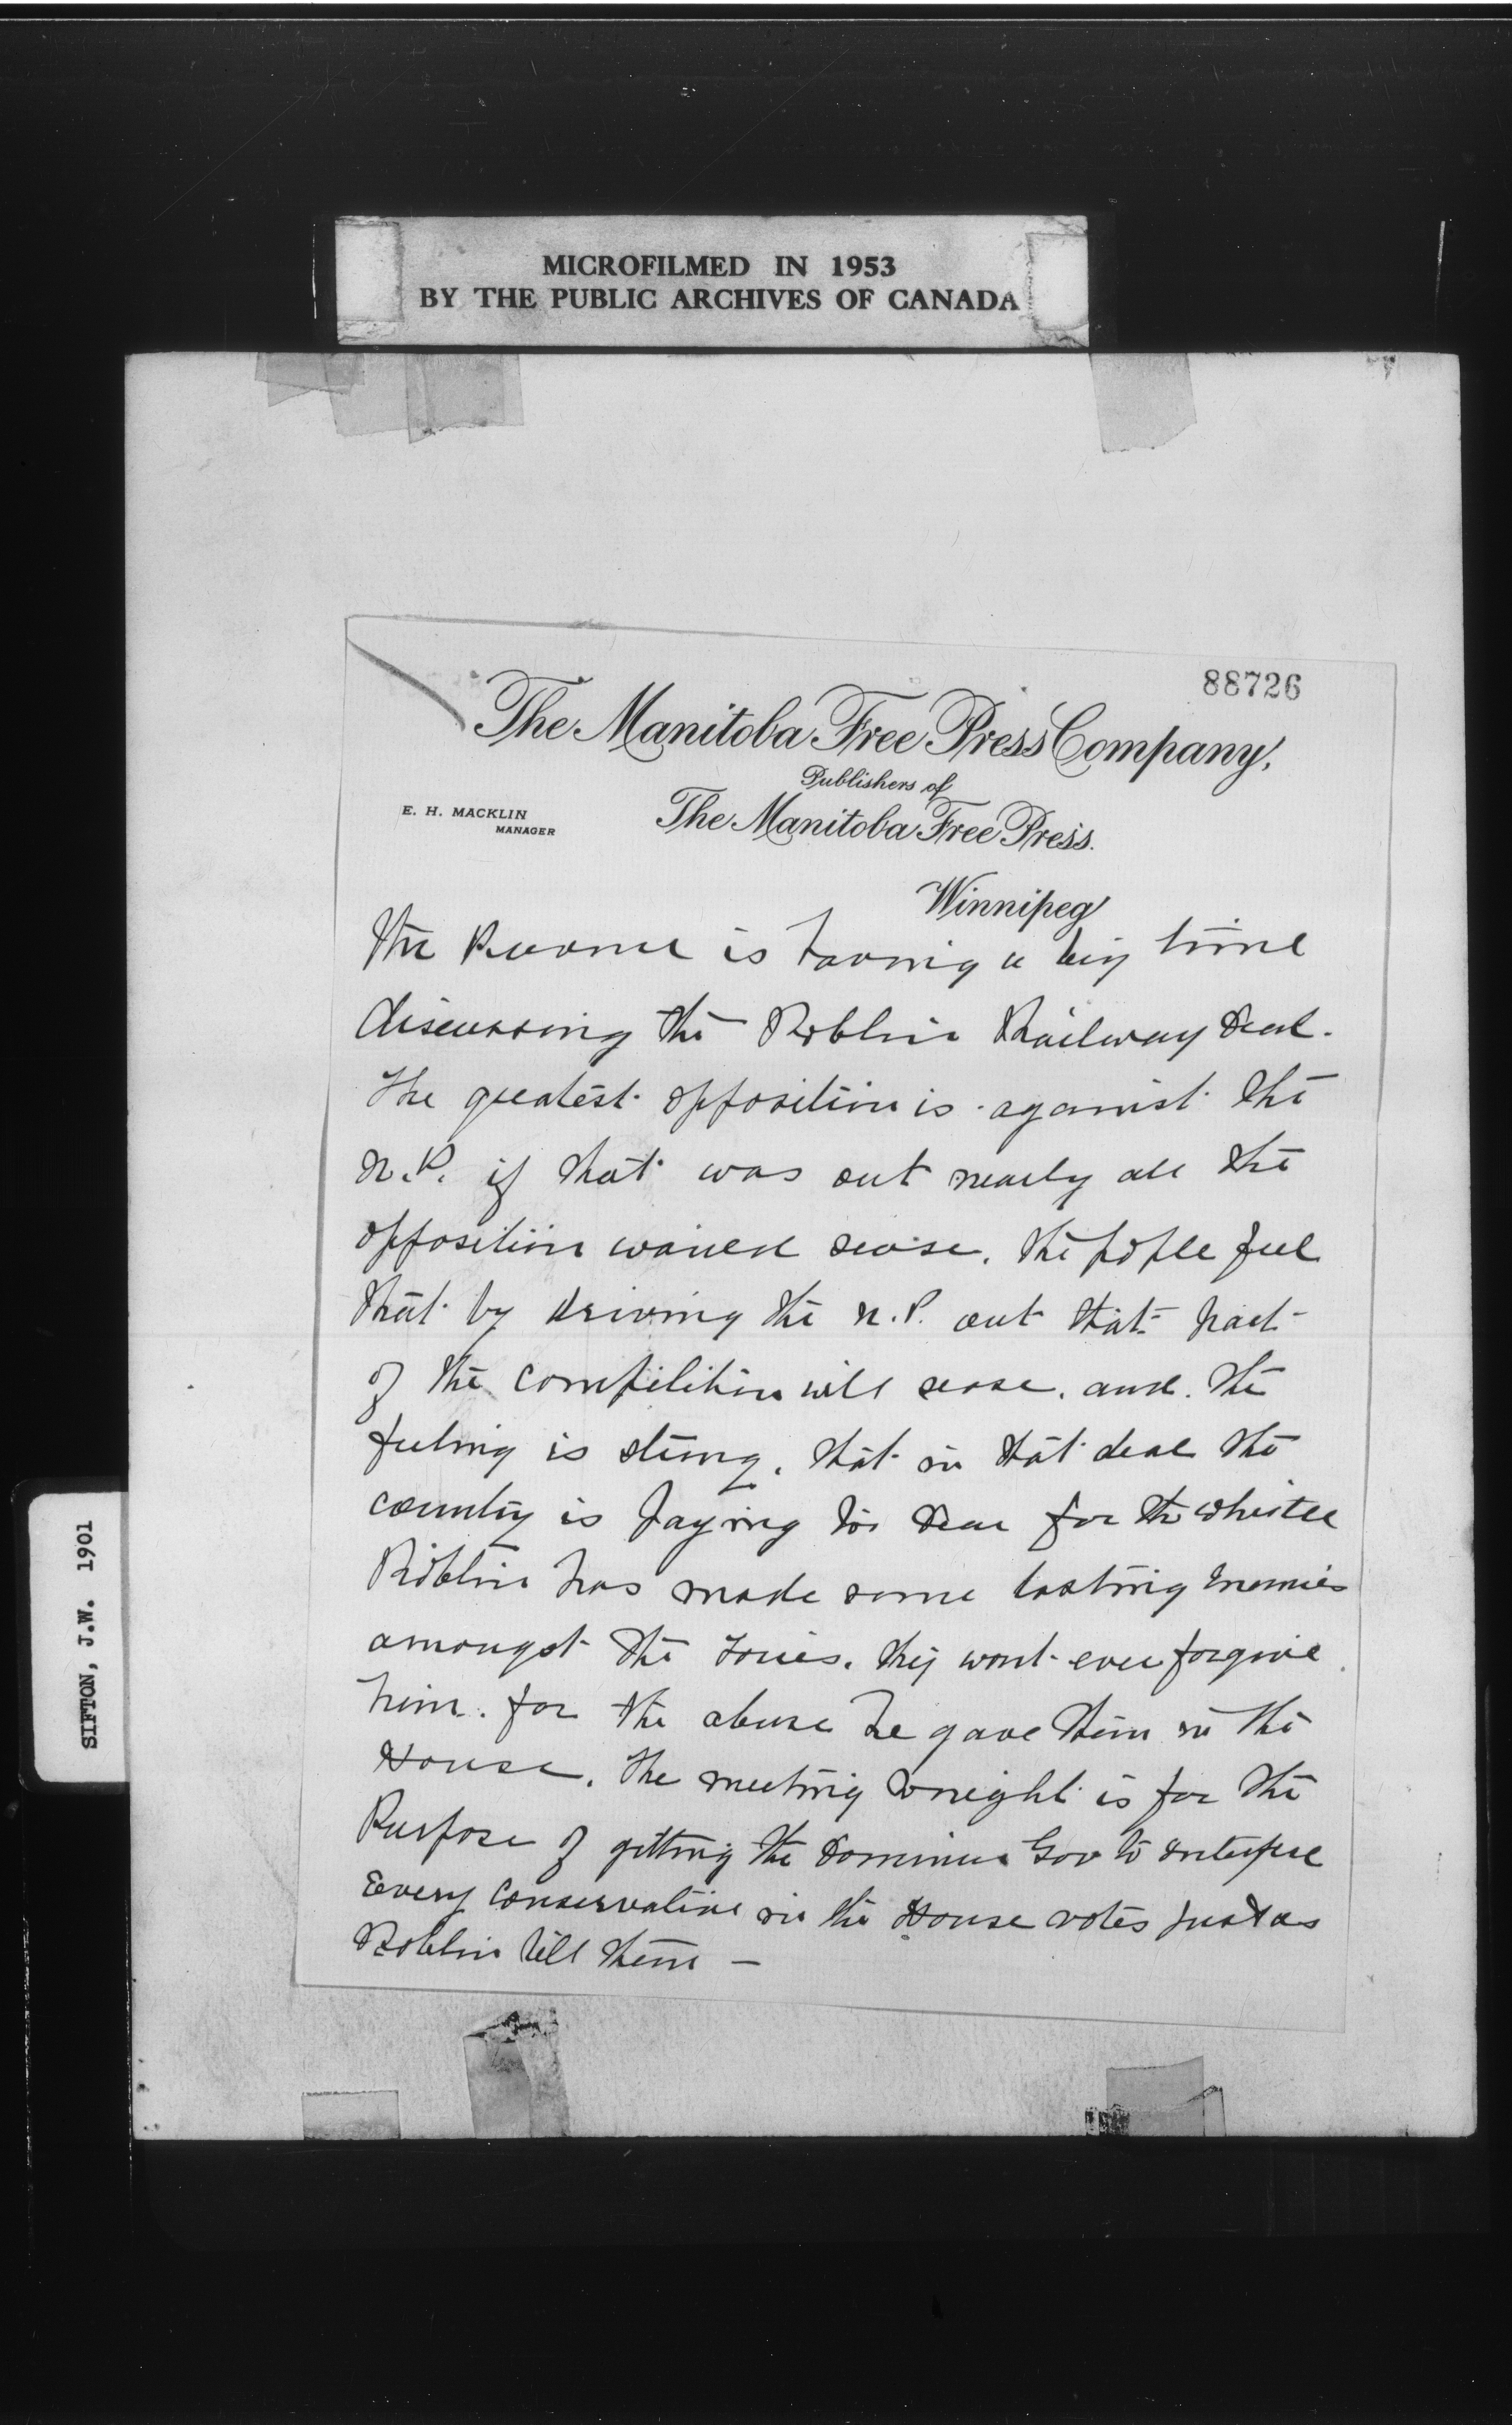 MICROFILMED IN 1953
BY THE PUBLIC ARCHIVES OF CANADA
88726
The Manitoba Free Press Company,
Publishers of
E. H. MACKLIN
MANAGER
The Manitoba Free Press.
Winnipeg
The is having a big time
discussing the Roblin Railway Deal.
The greatest opposition is against the
N.P. if that was out nearly all the
opposition would sease. the pople feel
that by driving the N.P. out that part
of the compitition will sease. and the
feeling is strong. that in that deal the
country is paying to dear for the whistle
Roblin has made some lasting Enemies
amongst the Tories. they wont ever forgive
him. for the abuse he gave them in the
House. The meeting tonight is for the
Purpose of getting the Dominion Gov to interfere
Every Conservative in the House votes just as
Roblin tell them —
SIFTON, J.W. 1901